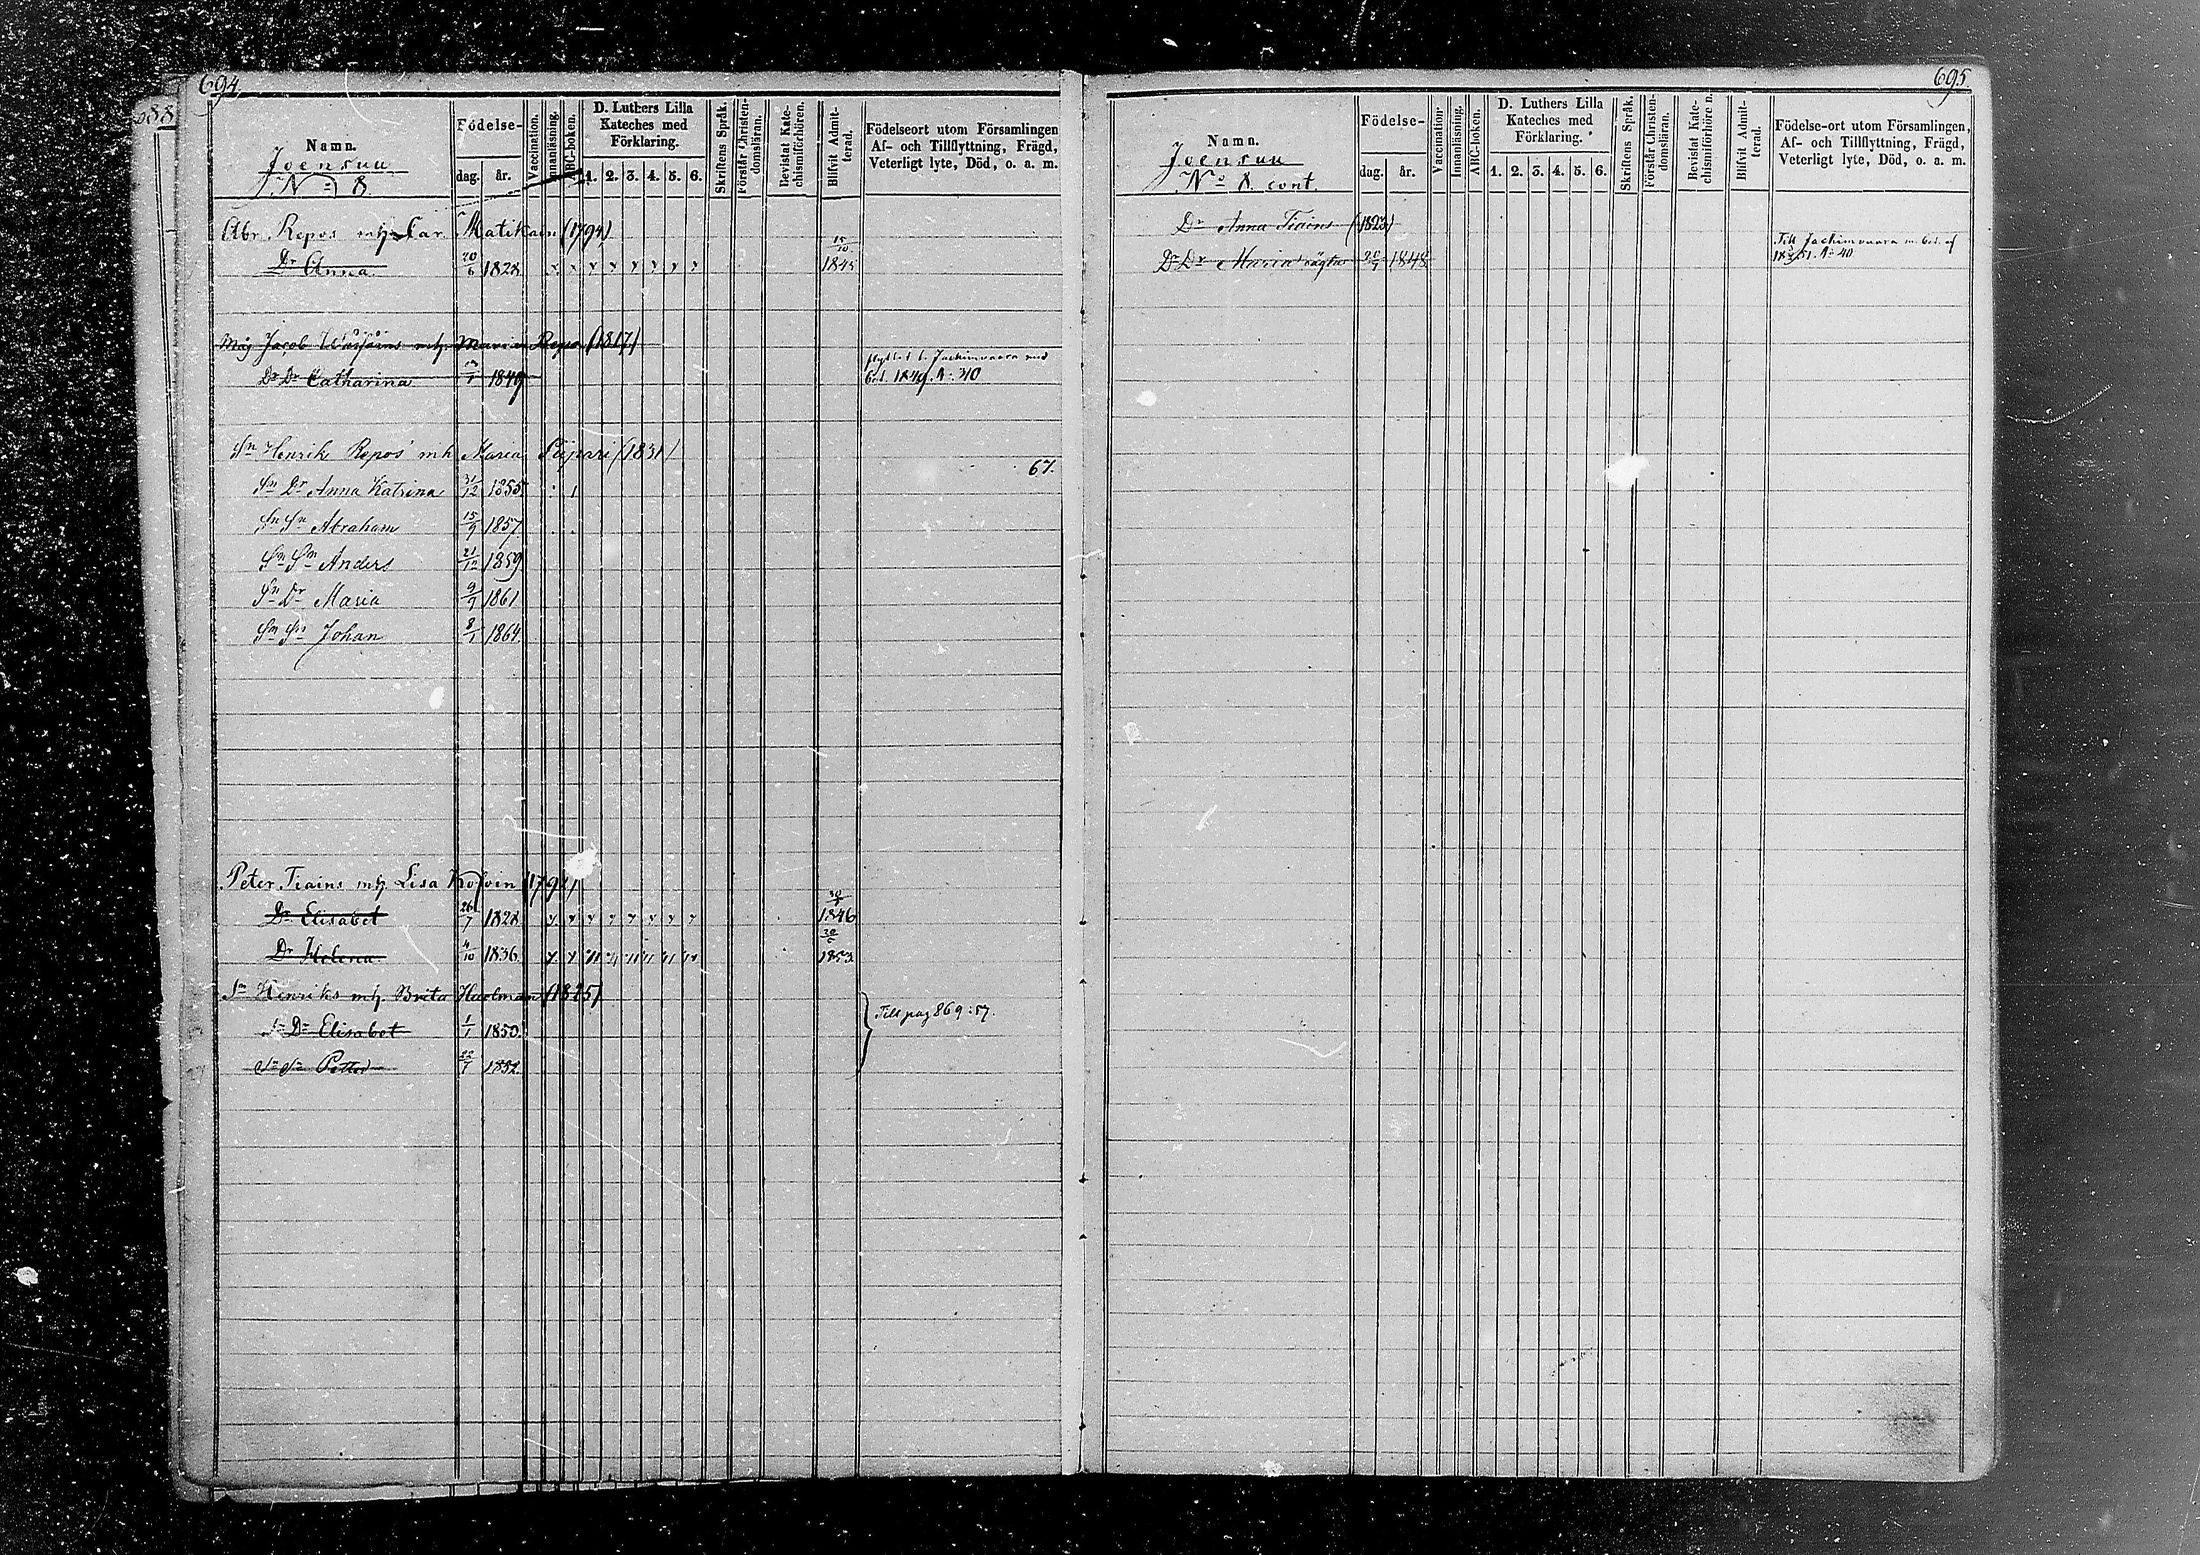 694.
688
Namn.
Joensuu
No 8.
Födelse-
dag. år.
Vaccination.
Innanläsning.
ABC-boken.
D. Luthers Lilla
Kateches med
Förklaring.
1. 2. 3. 4. 5. 6.
Skriftens Språk.
Förstår Christen-
domsläran.
Bevistat Kate-
chismiförhören.
Blifvit Admit-
terad.
Födelseort utom Församlingen
Af- och Tillflyttning, Frägd,
Veterligt lyte, Död, o. a. m.
Abr. Repos mh Car. Matikain (1794)
Dr Anna 20/6 1828 15/10 1845
Måg Jacob mh Maria Repo (1817)
Dr Dr Catharina 1849 flyttat t. Jachimvaara med
bet. 1849. No 30
Sn Henrik Repos mh Maria Piipari (1831)
67.
Sn Dr Anna Katrina 31/12 1855.
Sn Sn Abraham 15/9 1857.
Sn Sn Anders 21/12 1859.
Sn Dr Maria 9/9 1861
Sn Sn Johan 8/1 1864.
Peter Tiains mh. Lisa (1792)
Dr Elisabet 26/7 1828 1846
Dr Helena 4/10 1836. 1853.
Sn Henriks mh. Brita (1825)
Sn Dr Elisabet 1/1 1850.
Till pag 869:57.
Sn Sn Petter 22/1 1852.
695.
Namn.
Joensuu
No 8 cont.
Födelse-
dag. år.
Vaccination.
Innanläsning.
ABC-boken.
D. Luthers Lilla
Kateches med
Förklaring.
1. 2. 3. 4. 5. 6.
Skriftens Språk.
Förstår Christen-
domsläran.
Bevistat Kate-
chismiförhören.
Blifvit Admit-
terad.
Födelse-ort utom Församlingen,
Af- och Tillflyttning, Frägd,
Veterligt lyte, Död, o. a. m.
Dr Anna Tiains (1823)
Dr Dr Maria 1848
Till Jachimvaara m. bet. af
No 40